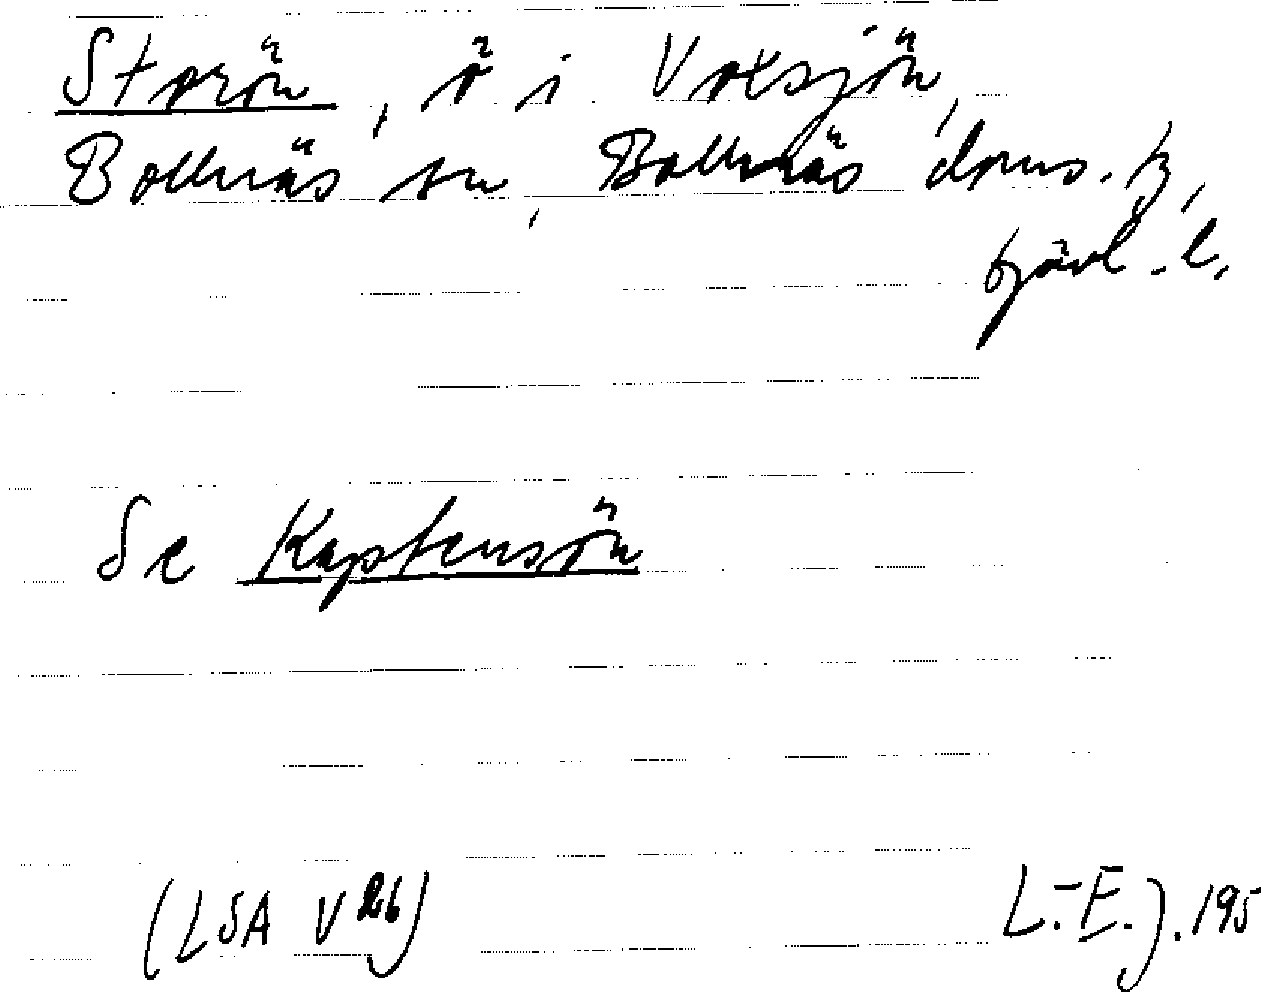 Storön, ö i Voxsjön,
Bollnäs sn, Bollnäs doms. tg,
Gävl. l.
Se Kaptensön
(LSA V 26) L.-E. J. 195